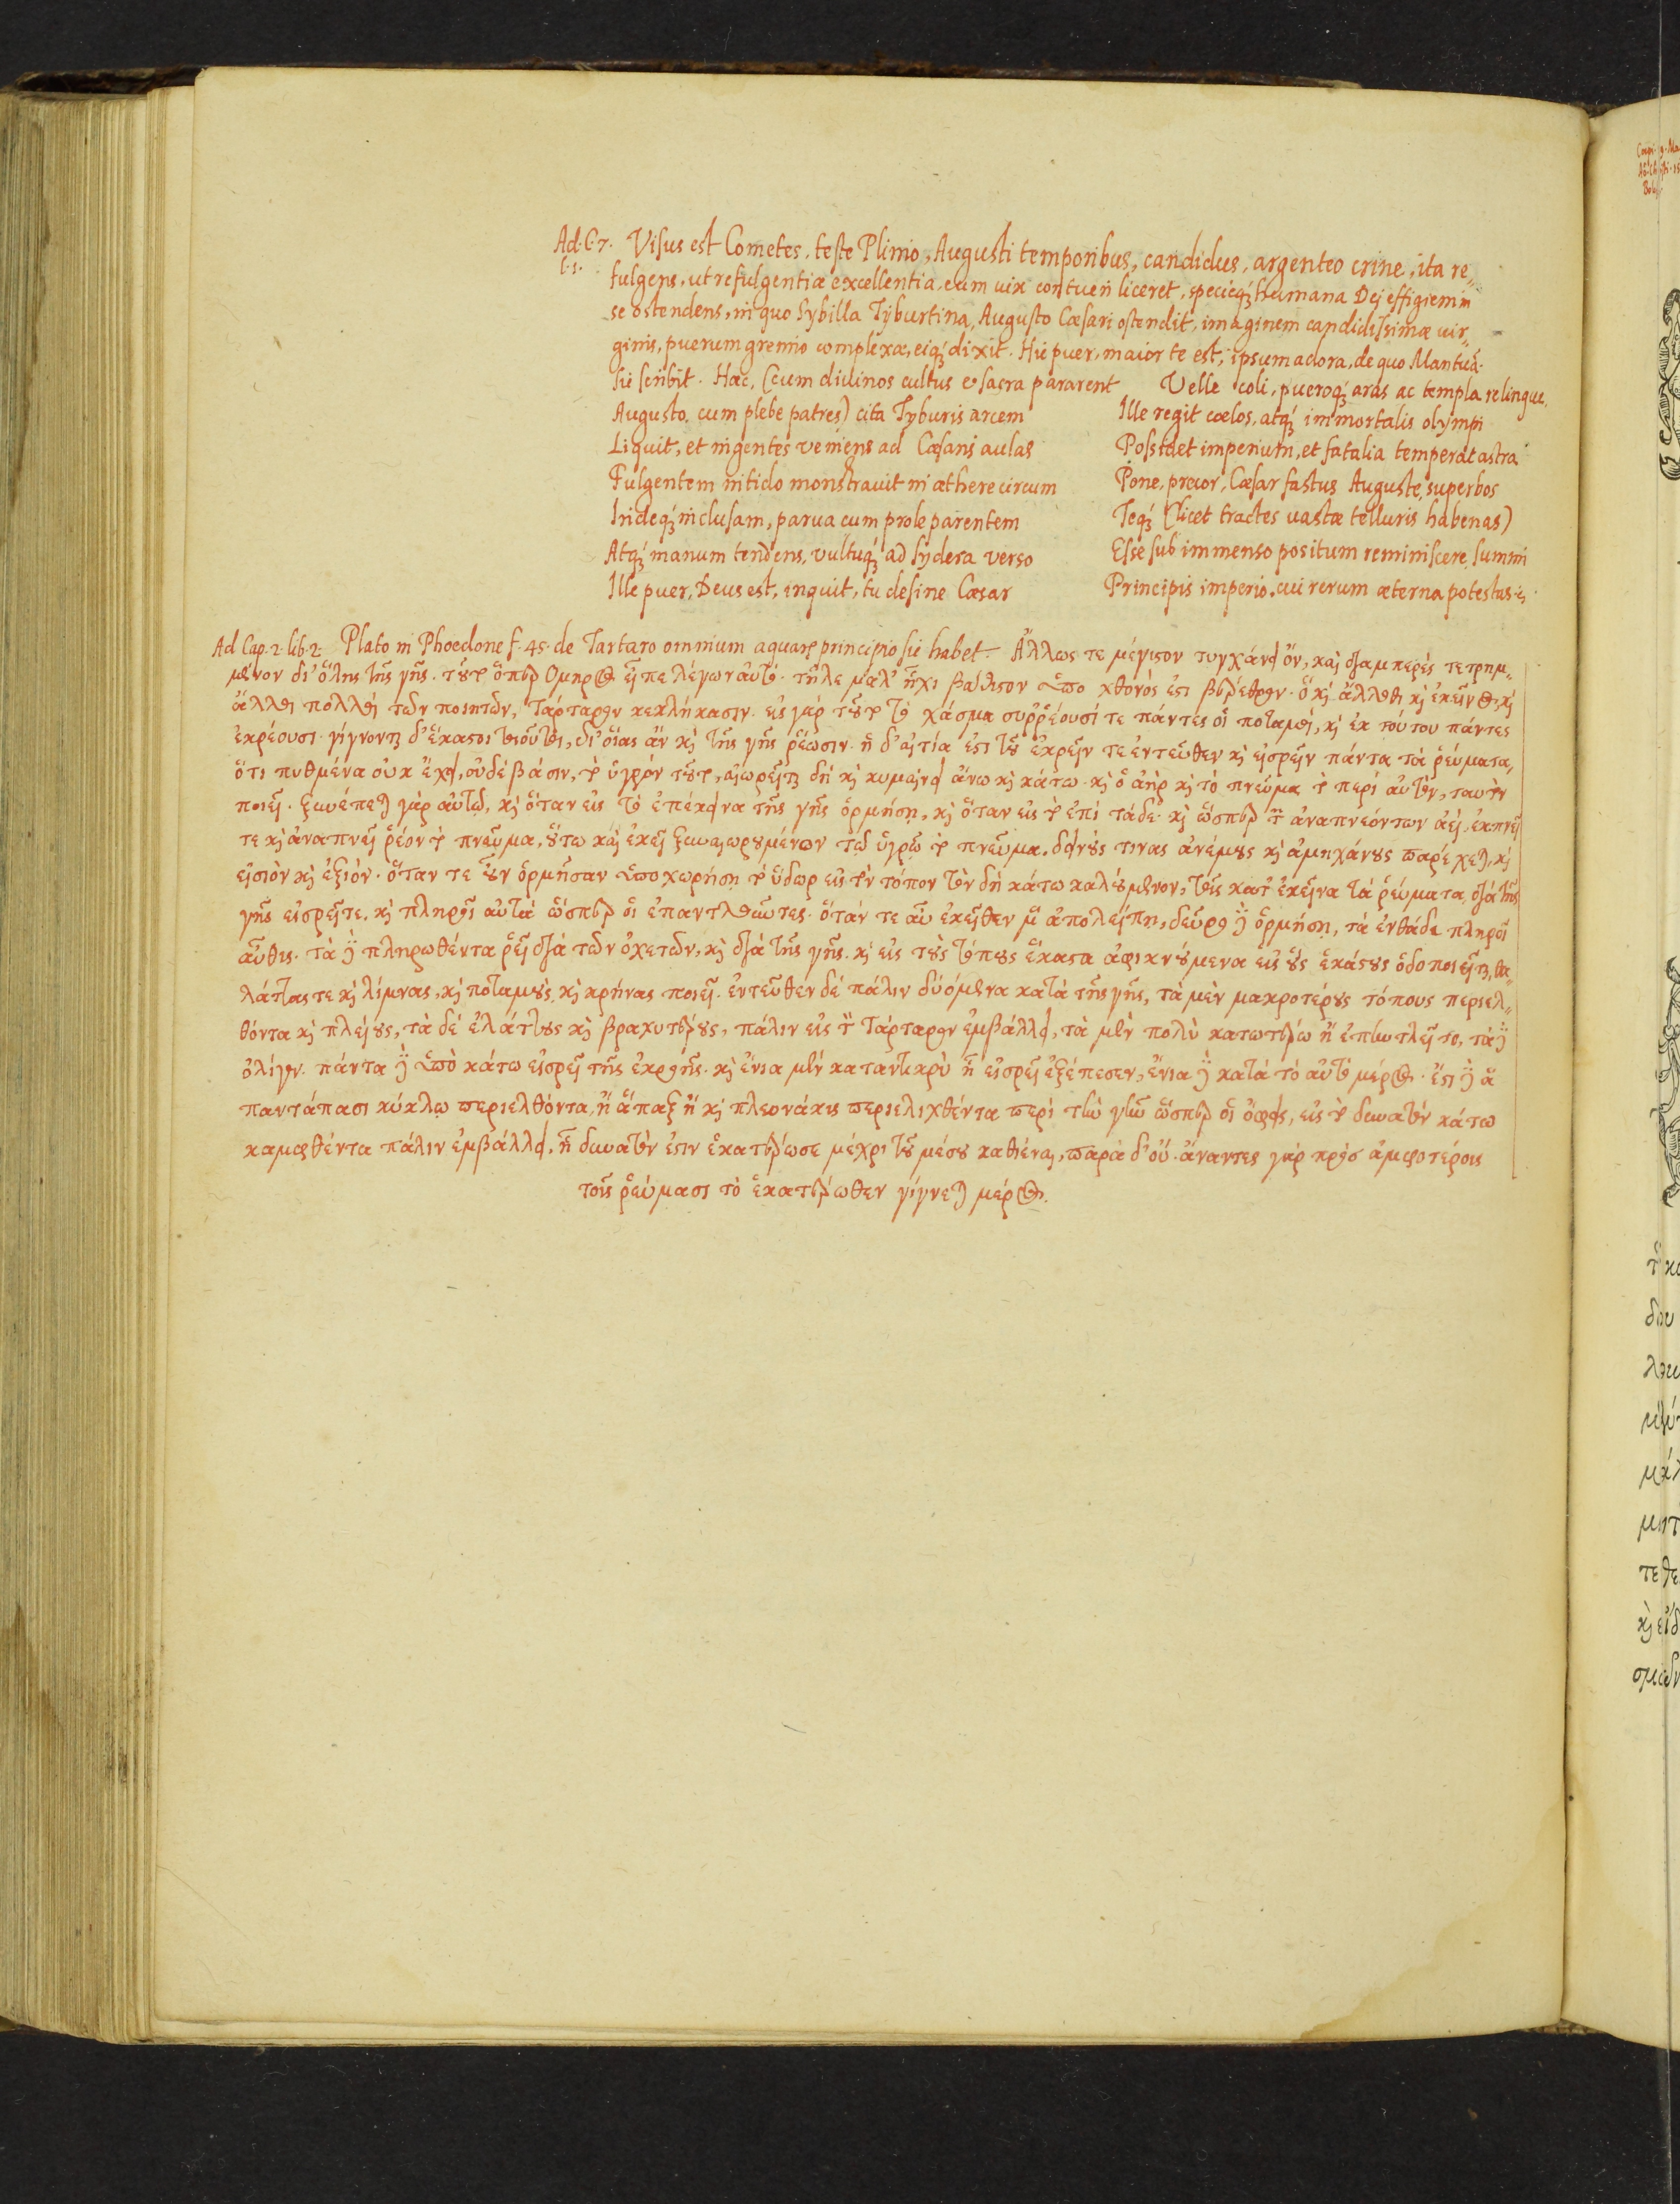 Ad. C. 7. Visus est Cometes, teste Plinio, Augusti temporibus, candidus, argenteo crine, ita re„
l. 1.
fulgens, ut refulgentiæ excellentia, eum uix contueri liceret, specieq́; humana Dej effigiem in
se ostendens, in quo Sybilla Tyburtina, Augusto Cæsari ostendit, imaginem candidissimæ uir„
ginis, puerum gremio complexæ, eiq́; dixit. Hic puer, maior te est, ipsum adora, de quo Mantuã.
sic scribit. Hæc, (cum diuinos cultus & sacra pararent
Augusto, cum plebe patres) cita Tyburis arcem
Liquit, et ingentes veniens ad Cæsaris aulas
Fulgentem nitido monstrauit in æthere circum
Irideq́; inclusam, parua cum prole parentem
Atq́; manum tendens, vultuq́; ad sydera verso
Ille puer, Deus est, inquit, tu desine Cæsar
Velle coli, pueroq́; aras ac templa relinque.
Ille regit cœlos, atq́; immortalis olympi
Possidet imperium, et fatalia temperat astra
Pone, precor, Cæsar fastus Auguste, superbos
Teq́; (licet tractes uastæ telluris habenas)
Esse sub immenso positum reminiscere, summi
Principis imperio, cui rerum æterna potestas ē;
Ad Cap. 2. lib. 2. Plato in Phœdone f. 45. de Tartaro omnium aquarꝝ principio sic habet. Ἄλλως τε μέγιστον τυγχάνει ὄν, καὶ διαμπερὲς τετρημ„
μένον δι' ὅλης τῆς γῆς. τοῦτο ὅπερ Ομηρος εἶπε λέγων αὐτό. τῆλε μαλ' ἧχι βάθιστον ὑπο χθονός ἐστι βέρεθρον. ὃ καὶ ἄλλοθι καὶ ἐκεῖνος, καὶ
ἄλλοι πολλοὶ τῶν ποιητῶν, Τάρταρον κεκλήκασιν. εἰς γάρ τοῦτο τὸ χάσμα συῤῥέουσί τε πάντες οἱ ποταμοί, καὶ ἐκ τούτου πάντες
ἐκρέουσι. γίγνονται δ' ἕκαστοι τοιοῦτοι, δι' οἵας ἂν καὶ τῆς γῆς ῥέωσιν. ἡ δ' αἰτία ἐστὶ τοῦ ἐκρεῖν τε ἐντεῦθεν καὶ εἰσρεῖν πάντα τὰ ῥεύματα,
ὅτι πυθμένα οὐκ ἔχει, οὐδὲ βάσιν, τὸ ὑγρόν τοῦτο, αἰωρεῖται δὴ καὶ κυμαίνει ἄνω καὶ κάτω. καὶ ὁ ἀὴρ καὶ τὸ πνεῦμα τὸ περί αὐτὸν, ταυτὸν
ποιεῖ. ξυνέπεται γὰρ αὐτῷ, καὶ ὅταν εἰς τὸ ἐπέκεινα τῆς γῆς ὁρμήσῃ, καὶ ὅταν εἰς τὸ ἐπὶ τάδε. καὶ ὥσπερ τῶν ἀναπνεόντων ἀεί, ἐκπνεῖ
τε καὶ ἀναπνεῖ ῥέον τὸ πνεῦμα, οὕτω καὶ ἐκεῖ ξυναιωρουμένων τῷ ὑγρῷ τὸ πνεῦμα. δεινούς τινας ἀνέμους καὶ ἀμηχάνους παρέχεται, καὶ
εἰσιὸν καὶ ἐξιόν. ὅταν τε οὖν ὁρμῆσαν ὑποχωρήσῃ τὸ ὕδωρ εἰς τὸν τόπον τὸν δὴ κάτω καλούμενον, τοῖς κατ' ἐκεῖνα τὰ ῥεύματα, διὰ τῆς
γῆς εἰσρεῖτε. καὶ πληροῖ αὐτὰ ὥσπερ οἱ ἐπαντλοῦντες. ὅταν τε αὖ ἐκεῖθεν μὲν ἀπολείπῃ, δεῦρο δὲ ὁρμήσῃ, τὰ ἐνθάδε πληροῖ
αὖθις. τὰ δὲ πληρωθέντα ῥεῖ διὰ τῶν ὀχετῶν, καὶ διὰ τῆς γῆς. καὶ εἰς τοὺς τόπους ἕκαστα ἀφικνούμενα εἰς οὓς ἑκάστους ὁδοποιεῖται, θα„
λάττας τε καὶ λίμνας, καὶ ποταμοὺς, καὶ κρήνας ποιεῖ. ἐντεῦθεν δὲ πάλιν δυόμενα κατὰ τῆς γῆς, τὰ μὲν μακροτέρους τόπους περιελ„
θόντα καὶ πλείους, τὰ δὲ ἐλάττους καὶ βραχυτέρους, πάλιν εἰς τὸν Τάρταρον ἐμβάλλει, τὰ μὲν πολὺ κατωτέρω ἢ ἐπηντλεῖτο, τὰ δὲ
ὀλίγον. πάντα δὲ ὑπὸ κάτω εἰσρεῖ τῆς ἐκροῆς. καὶ ἔνια μὲν καταντικρὺ ᾗ εἰσρεῖ ἐξέπεσεν, ἔνια δὲ κατὰ τὸ αὐτὸ μέρος. ἔστι δὲ ἃ
παντάπασι κύκλῳ περιελθόντα, ἢ ἅπαξ ἢ καὶ πλεονάκις περιελιχθέντα περὶ τὴν γῆν ὥσπερ οἱ ὄφεις, εἰς τὸ δυνατὸν κάτω
καμφθέντα πάλιν ἐμβάλλει. ᾗ δυνατὸν ἐστιν ἑκατέρωσε μέχρι τοῦ μέσου καθιέναι, παρὰ δ' οὔ. ἄναντες γὰρ πρὸσ ἀμφοτέροις
τοῖς ῥεύμασι τὸ ἑκατέρωθεν γίγνεται μέρος.